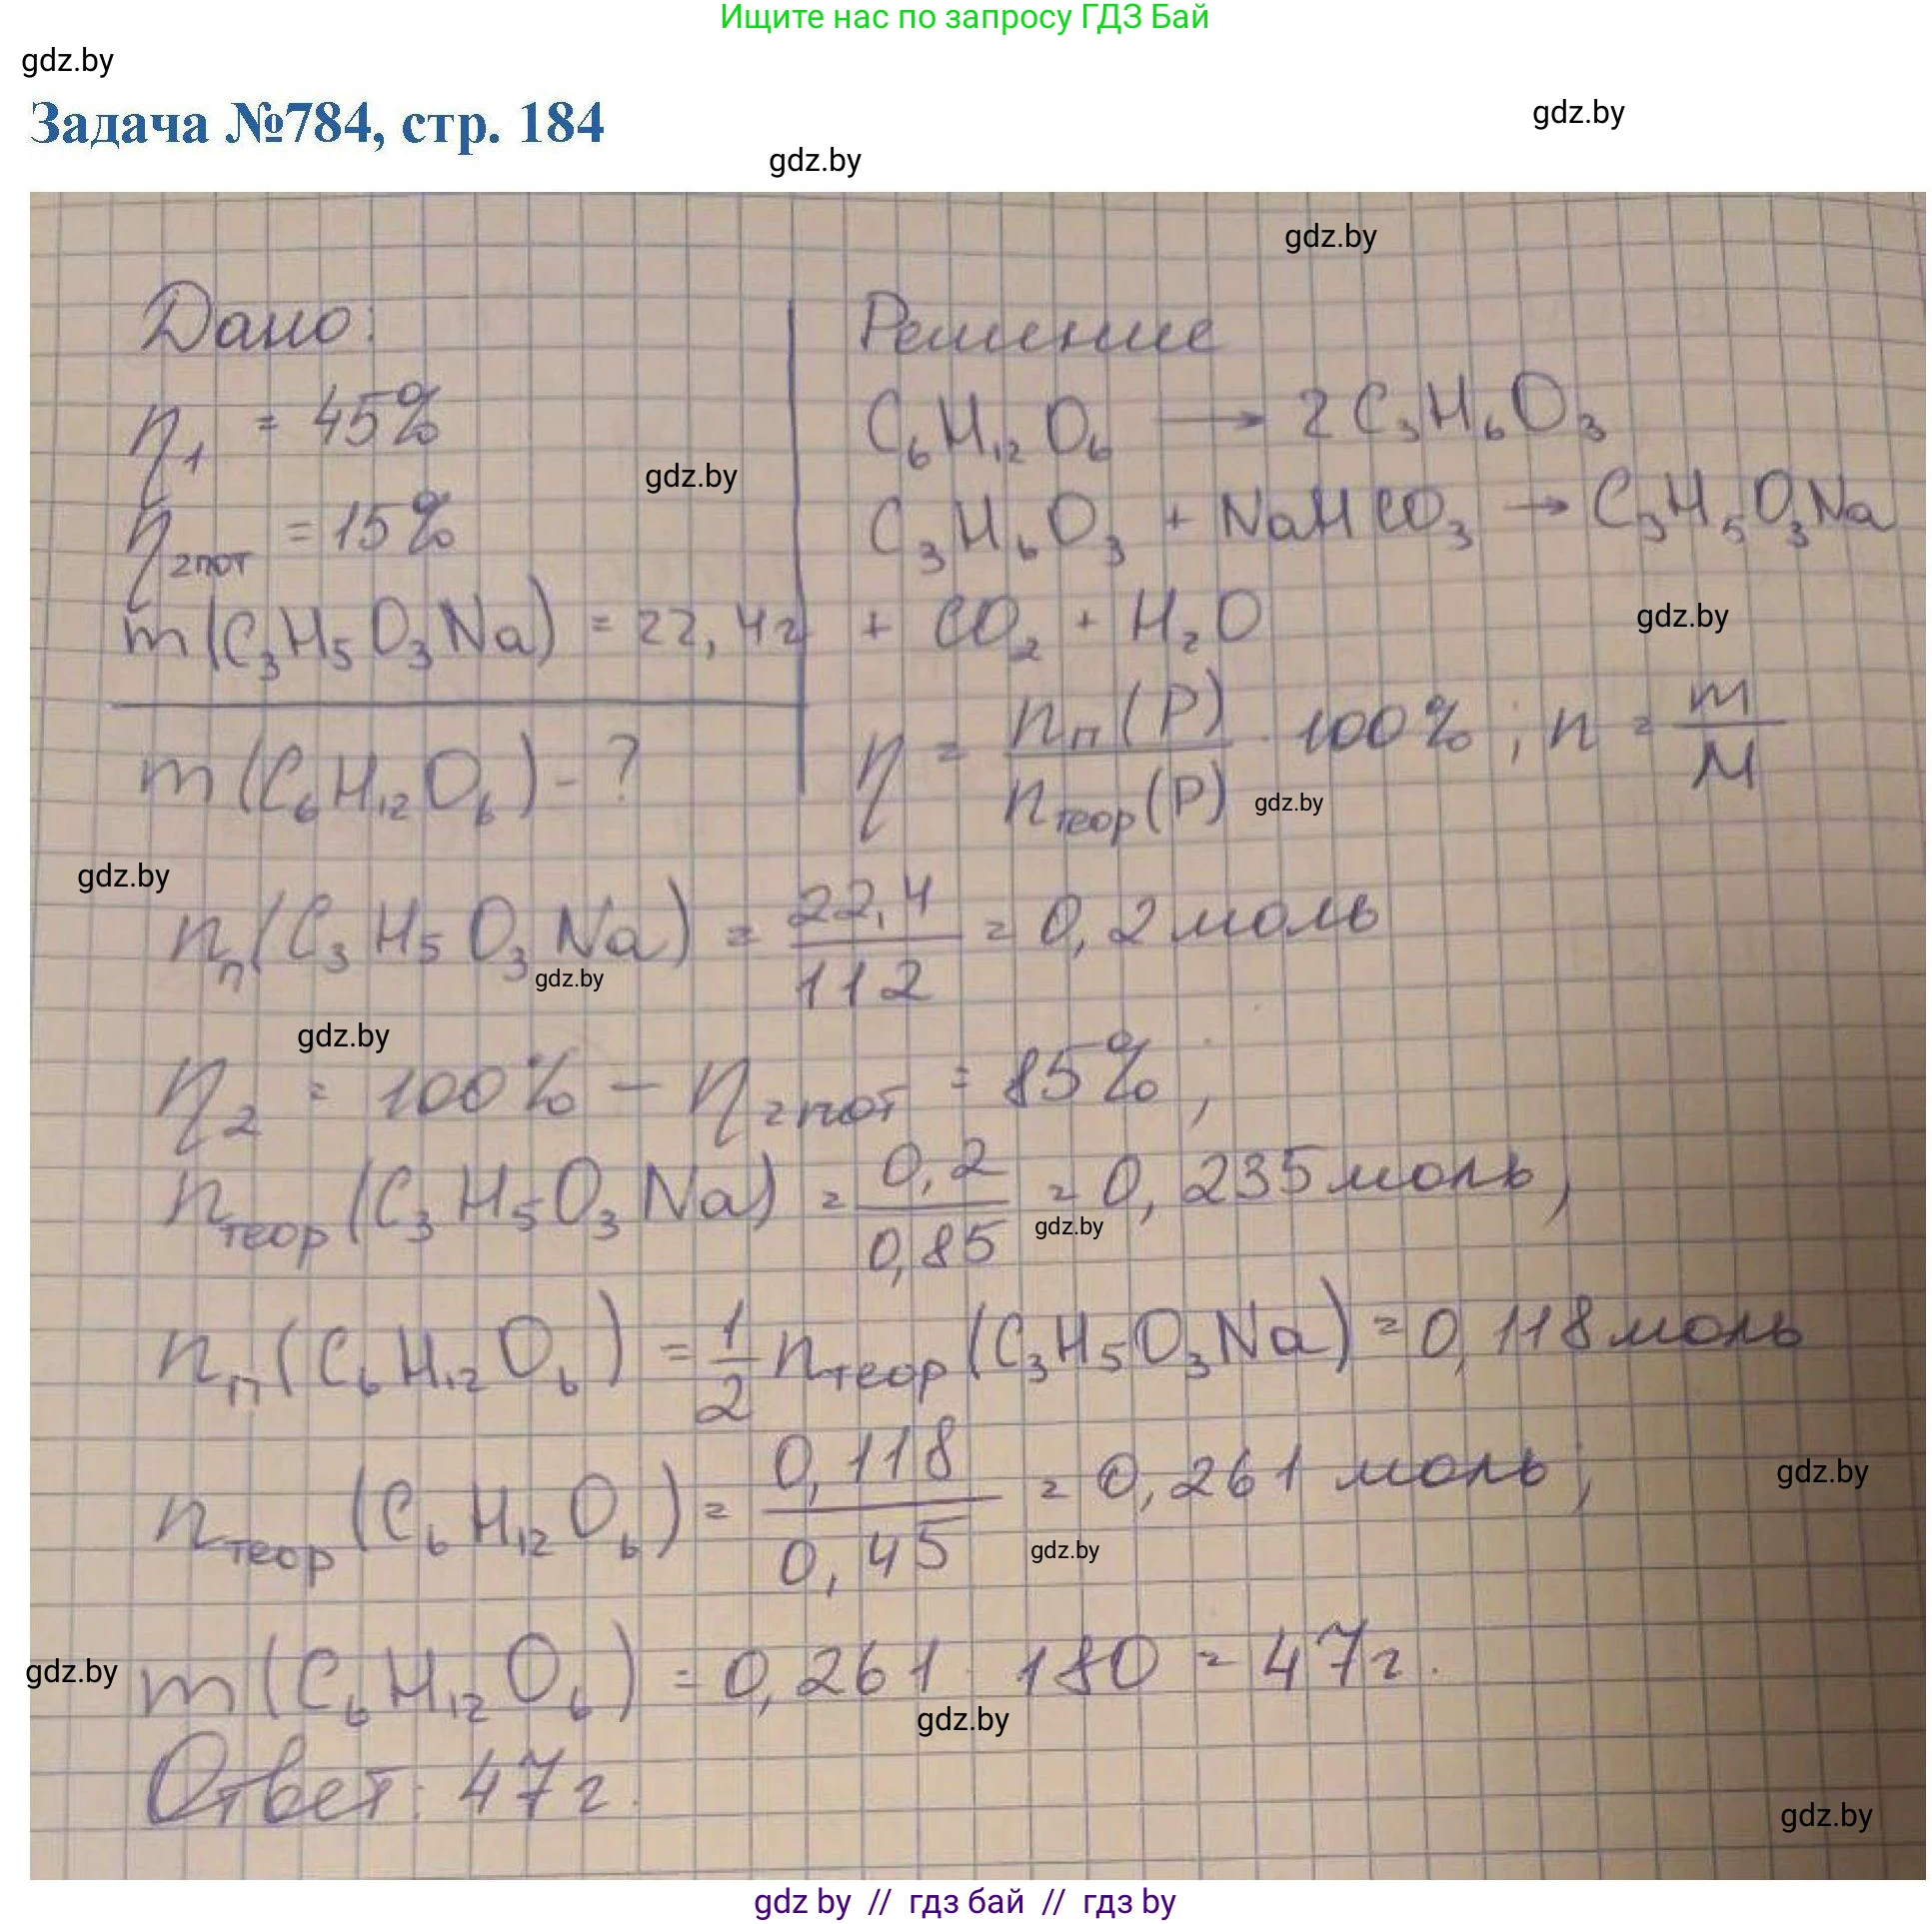 Ищите нас по запросу ГДЗ Бай
gdz.by
Задача №784, стр. 184
gdz.by
gdz.by
gdz.by
Дано:
Решение
η₁ = 45%
C₆H₁₂O₆ → 2C₃H₆O₃
gdz.by
η₂пот = 15%
C₃H₆O₃ + NaHCO₃ → C₃H₅O₃Na
m(C₃H₅O₃Na) = 22,4г
+ CO₂ + H₂O
gdz.by
m(C₆H₁₂O₆) - ?
η = nп(P)/nтеор(P) · 100% ; n = m/M
gdz.by
gdz.by
nп(C₃H₅O₃Na) = 22,4/112 = 0,2 моль
gdz.by
gdz.by
η₂ = 100% - η₂пот = 85% ;
nтеор(C₃H₅O₃Na) = 0,2/0,85 = 0,235 моль;
gdz.by
nп(C₆H₁₂O₆) = 1/2 nтеор(C₃H₅O₃Na) = 0,118 моль
nтеор(C₆H₁₂O₆) = 0,118/0,45 = 0,261 моль;
gdz.by
gdz.by
m(C₆H₁₂O₆) = 0,261 · 180 = 47г.
gdz.by
gdz.by
Ответ: 47г.
gdz.by
gdz by // гдз бай // гдз by